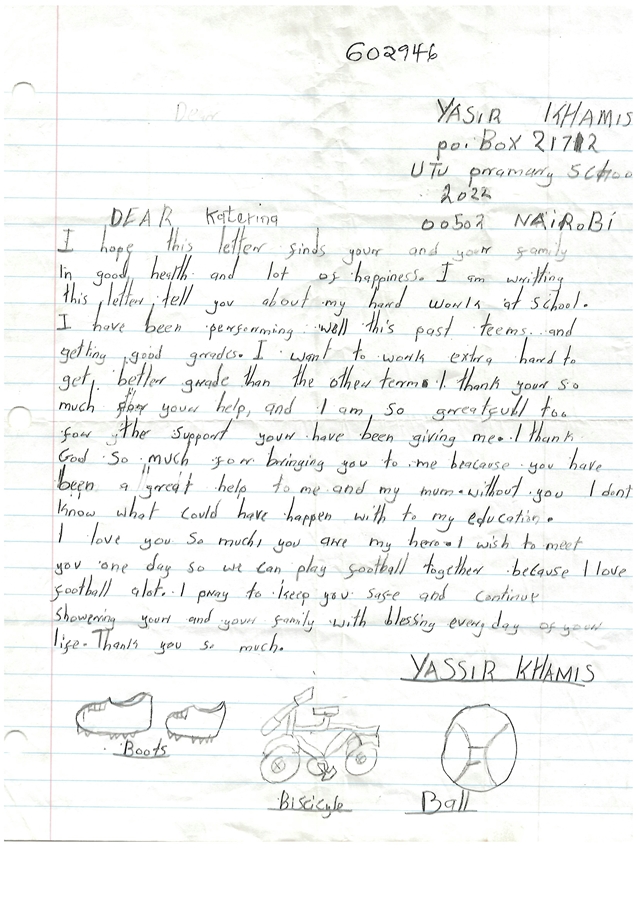 602946
Dear
YASIR KHAMIS
po. BOX 21712
UTU pramary Schoo
2022
00502 NAiRoBi
DEAR Katerina
I hope this letter finds your and your family
in good, health and lot of happiness. I am writting
this letter, tell you about my hard works at school.
I have been performing well this past teems. and
getting good grades. I want to work extra hard to
get, better grade than the other term. I thank your so
much for your help, and I am, so greatfull too
for the support your have been giving me. I thank
God so much for bringing you to me beacause you have
been a great help to me and my mum. without you I dont
know what could have happen with to my education.
I love you so much, you are my hero. I wish to meet
you one day so we can play football together because I love
football alot. I pray to keep you safe and continue
showering your and your family with blessing everyday of your
life. Thank you so much.
YASSIR KHAMIS
Boots
Biscicyle
Ball